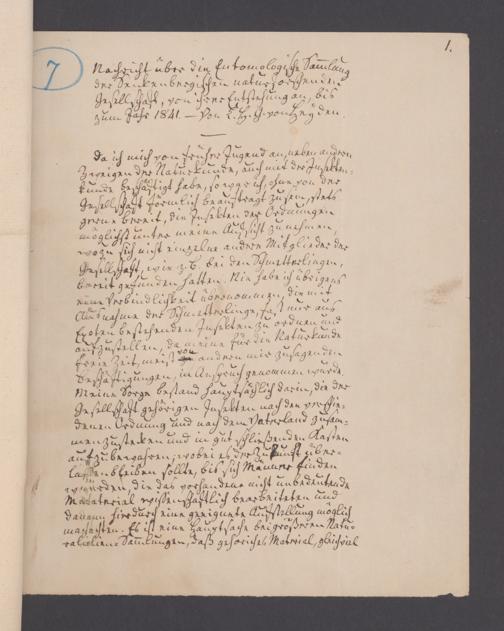 1.
7
Nachricht über die Entomologische Sammlung
der Senkenbergischen naturforschenden
Gesellschaft, von ihrer Entstehung an, bis
zum Jahr 1841. — Von C. H. G. von Heyden.
Da ich mich von früher Jugend an, neben andern
Zweigen der Naturkunde, auch mit der Insekten-
kunde beschäftigt habe, so war ich, ohne von der
Gesellschaft förmlich beauftragt zu sein, stets
gerne bereit, die Insekten der Ordnungen
möglichst unter meine Aufsicht zu nehmen,
wozu sich nicht einzelne andere Mitglieder der
Gesellschaft, wie z. B. bei den Schmetterlingen,
bereit gefunden hatten. Nie habe ich übrigens
eine Verbindlichkeit übernommen, die mit
Ausnahme der Schmetterlinge, fast nur aus
Exoten bestehenden Insekten zu ordnen und
aufzustellen, da meine für die Naturkunde
freie Zeit, meist von anderen mir zusagenden
Beschäftigungen, in Anspruch genommen wurde.
Meine Sorge bestand hauptsächlich darin, die der
Gesellschaft gehörigen Insekten nach den verschie-
denen Ordnung und nach dem Vaterland zusam-
menzustecken und in gut schließenden Kasten
aufzubewahren, wobei es der Zukunft über-
lassen bleiben sollte, bis sich Männer finden
würden, die das vorhandene nicht unbedeutende
Material wissenschaftlich bearbeiteten und
dann hierdurch eine geeignete Aufstellung möglich
machten. Es ist eine Hauptsache bei größeren Natu-
ralien Sammlungen, daß gehöriches Material, gleichviel